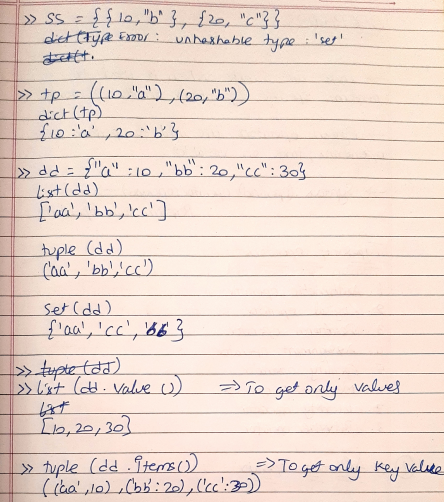 >> SS = {{10,"b"}, {20, "c"}}
dict(type Error: unhashable type : 'set'
dict(t.
>> tp = ((10,"a"),(20,"b"))
dict(tp)
{10:'a', 20:'b'}
>> dd = {"a":10,"bb":20,"cc":30}
list(dd)
['aa','bb','cc']
tuple (dd)
('aa', 'bb','cc')
Set(dd)
{'aa','cc','bb'}
>> tuple (dd)
>> list (dd. value ()) => To get only values
list
[10,20,30]
>> tuple (dd .items()) => To get only Key value
(('aa',10),('bb':20),('cc':30))